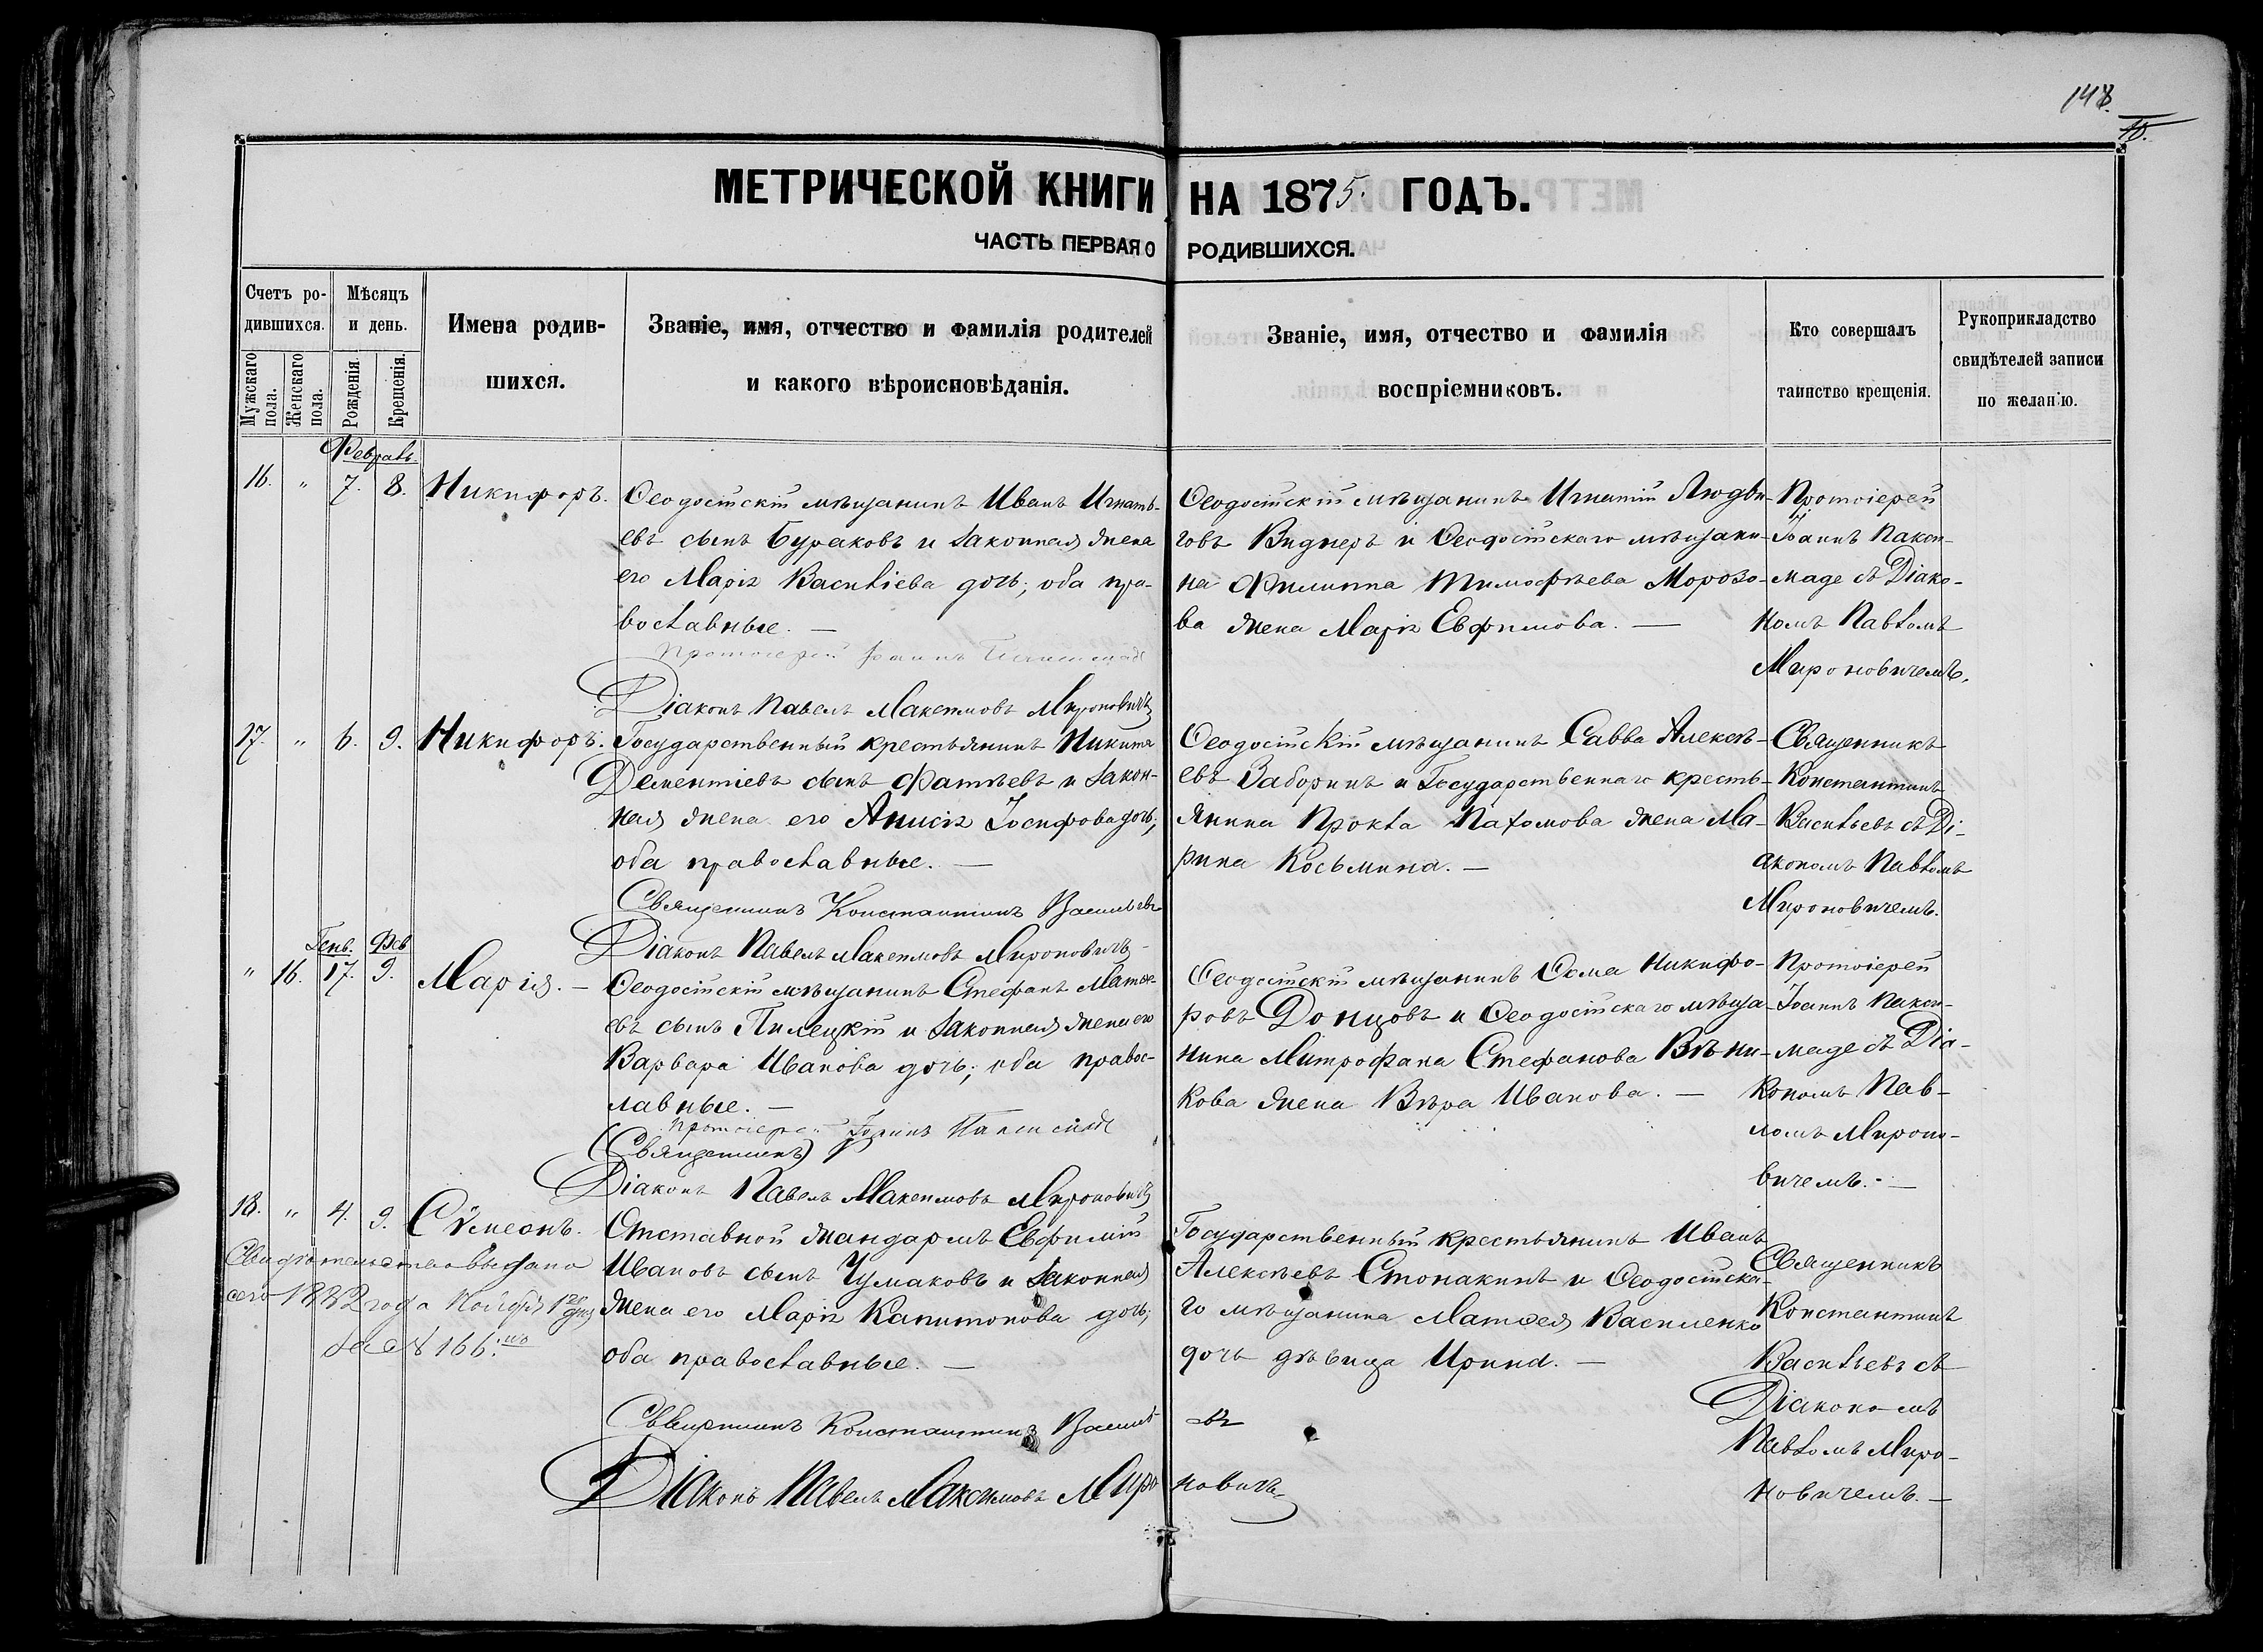 148.
10.
МЕТРИЧЕСКОЙ КНИГИ НА 1875. ГОДЪ.
ЧАСТЬ ПЕРВАЯ О РОДИВШИХСЯ.
Счетъ ро-
дившихся.
Мужскаго пола.
Женскаго пола.
Мѣсяцъ
и день.
Рожденія.
Крещенія.
Имена родив-
шихся.
Званіе, имя, отчество и фамилія родителей
и какого вѣроисповѣданія.
Званіе, имя, отчество и фамилія
воспріемниковъ.
Кто совершалъ
таинство крещенія.
Рукоприкладство
свидѣтелей записи
по желанію.
Февраль.
16. " 7. 8. Никифоръ.
Ѳеодосійскій мѣщанинъ Иванъ Игнать-
евъ сынъ Бураковъ и законная жена
его Марія Василіева дочь; оба пра-
вославные. —
Протоіерей Іоаннъ
Діаконъ Павелъ Максимовъ Мироновичъ
Ѳеодосійскій мѣщанинъ Игнатій Людви-
говъ Виднеръ и Ѳеодосійскаго мѣщани-
на Филиппа Тимофѣева Морозо-
ва жена Марія Евфимова. —
Протоіерей
Іоаннъ Пакси-
маде съ Діако-
номъ Павломъ
Мироновичемъ.
17. " 6. 9. Никифоръ.
Государственный крестьянинъ Никита
Дементіевъ сынъ Фатѣевъ и закон-
ная жена его Анисія Іосифова дочь;
оба православные. —
Священникъ Константинъ Васильевъ
Діаконъ Павелъ Максимовъ Мироновичъ
Ѳеодосійскій мѣщанинъ Савва Алексѣ-
евъ Заборинъ и Государственнаго кресть-
янина Прокла Пахомова жена Ма-
рина Косьмина. —
Священникъ
Константинъ
Васильевъ съ Ді-
акономъ Павломъ
Мироновичемъ.
Генв. Фев
" 16. 17. 9. Марія. —
Ѳеодосійскій мѣщанинъ Стефанъ Матѳе-
евъ сынъ Пилецкій и законная жена его
Варвара Иванова дочь; оба правос-
лавные. —
Протоіерей Іоаннъ
(Священникъ)
Діаконъ Павелъ Максимовъ Мироновичъ
Ѳеодосійскій мѣщанинъ Ѳома Никифо-
ровъ Донцовъ и Ѳеодосійскаго мѣща-
нина Митрофана Стефанова Вѣни-
кова жена Вѣра Иванова. —
Протоіерей
Іоаннъ Пакси-
маде съ Діа-
кономъ Пав-
ломъ Мироно-
вичемъ. —
18. " 4. 9. Сѵмеонъ.
Свидѣтельство выдано
сего 1882 года Ноября 1го дня
за № 166.мъ
Отставной жандармъ Евфимій
Ивановъ сынъ Чумаковъ и законная
жена его Марія Капитонова дочь;
оба православные. —
Священникъ Константинъ Васильевъ
Діаконъ Павелъ Максимовъ Мироновичъ
Государственный крестьянинъ Иванъ
Алексѣевъ Стонакинъ и Ѳеодосійска-
го мѣщанина Матѳея Василенко
дочь дѣвица Ирина. —
Священникъ
Константинъ
Васильевъ съ
Діакономъ
Павломъ Миро-
новичемъ. —